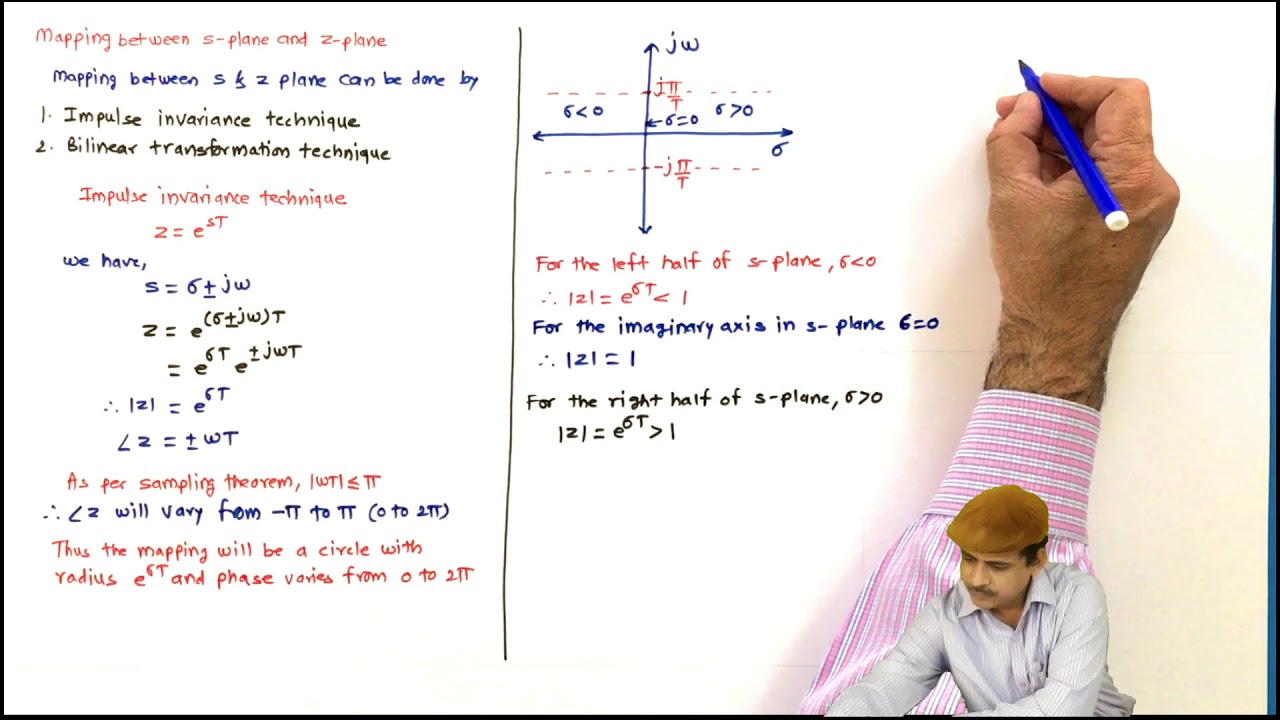 Mapping between s-plane and z-plane
Mapping between s & z plane can be done by
1. Impulse invariance technique
2. Bilinear transformation technique
Impulse invariance technique
z = e^sT
we have,
s = σ ± jω
z = e^(σ±jω)T
= e^σT e^±jωT
∴ |z| = e^σT
∠z = ± ωT
As per sampling theorem, |ωT| ≤ π
∴ ∠z will vary from -π to π (0 to 2π)
Thus the mapping will be a circle with
radius e^σT and phase varies from 0 to 2π
jω
jπ/T
σ<0
σ>0
←σ=0
σ
-jπ/T
For the left half of s-plane, σ<0
∴ |z| = e^σT < 1
For the imaginary axis in s-plane σ=0
∴ |z| = 1
For the right half of s-plane, σ>0
|z| = e^σT > 1